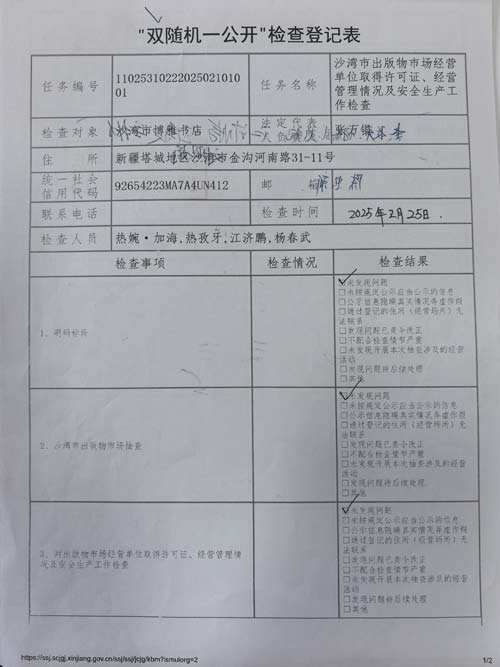 "双随机一公开"检查登记表
任务编号
11025310222025021010
01
任务名称
沙湾市出版物市场经营
单位取得许可证、经营
管理情况及安全生产工
作检查
检查对象
沙湾市博雅书店
法定代表
人
张万银
住 所
新疆塔城地区沙湾市金沟河南路31-11号
统一社会
信用代码
92654223MA7A4UN412
邮
联系电话
检查时间
2025年2月25日.
检查人员
热婉·加海,热孜牙,江济鹏,杨春武
检查事项
检查情况
检查结果
1、明码标价
☑未发现问题
□未按规定公示应当公示的信息
□公示信息隐瞒真实情况弄虚作假
□通过登记的住所（经营场所）无
法联系
□发现问题已责令改正
□不配合检查情节严重
□未发现开展本次抽查涉及的经营
活动
□发现问题待后续处理
□其他
2、沙湾市出版物市场抽查
☑未发现问题
□未按规定公示应当公示的信息
□公示信息隐瞒真实情况弄虚作假
□通过登记的住所（经营场所）无
法联系
□发现问题已责令改正
□不配合检查情节严重
□未发现开展本次抽查涉及的经营
活动
□发现问题待后续处理
□其他
3、对出版物市场经营单位取得许可证、经营管理情
况及安全生产工作检查
☑未发现问题
□未按规定公示应当公示的信息
□公示信息隐瞒真实情况弄虚作假
□通过登记的住所（经营场所）无
法联系
□发现问题已责令改正
□不配合检查情节严重
□未发现开展本次抽查涉及的经营
活动
□发现问题待后续处理
□其他
https://ssj.scjgj.xinjiang.gov.cn/ssj/ssj/jcjg/kbm?ismulorg=2
1/2